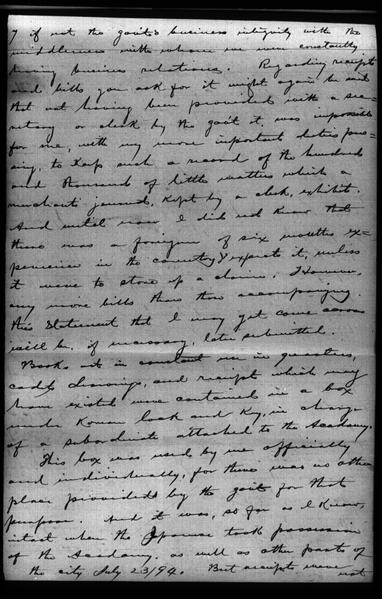 7 if not the gov't's business integrity with the
middlemen with whom we were constantly
having business relations. Regarding receipts
and bills you ask for it might again be said
that not having been provided with a sec-
retary or clerk by the gov't it was impossible
for me, with my more important duties pres-
sing, to keep such a record of the hundreds
and thousands of little matters which a
merchant's journal, kept by a clerk, exhibit.
And until now I did not know that
there was a foreigner of six months ex-
perience in the country expects it, unless
it were to store up a claim. However,
any more bills than those accompanying
this statement that I may get come across
will be, if necessary, later submitted.
Books etc in constant use in quarters,
cadet drawings, and receipts which may
have existed were contained in a box
under Korean lock and key, in charge
of a subordinate attached to the Academy.
This box was used by me officially
and individually, for there was no other
place provided by the gov't for that
purpose. And it was, so far as I know,
intact when the Japanese took possession
of the Academy, as well as other parts of
the city July 23/94. But receipts were
not